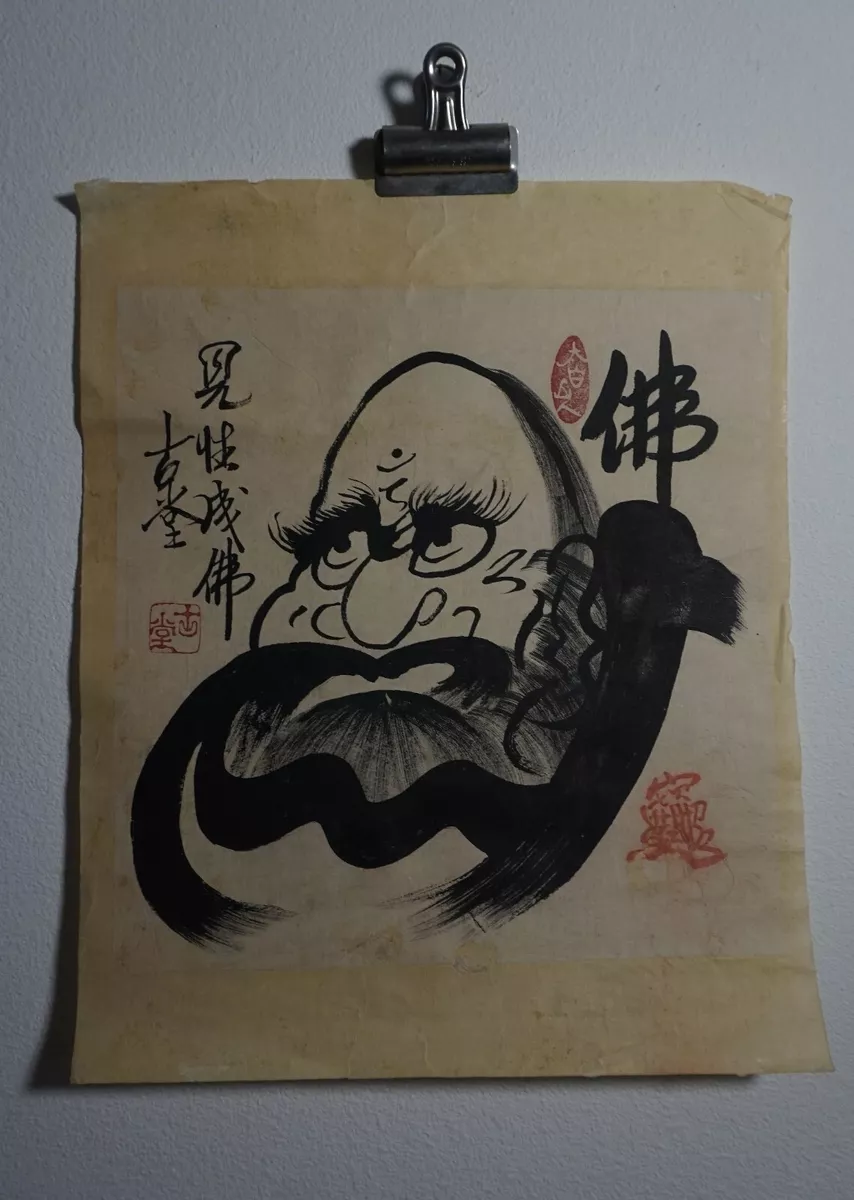 佛
見性成佛
古堂
古堂